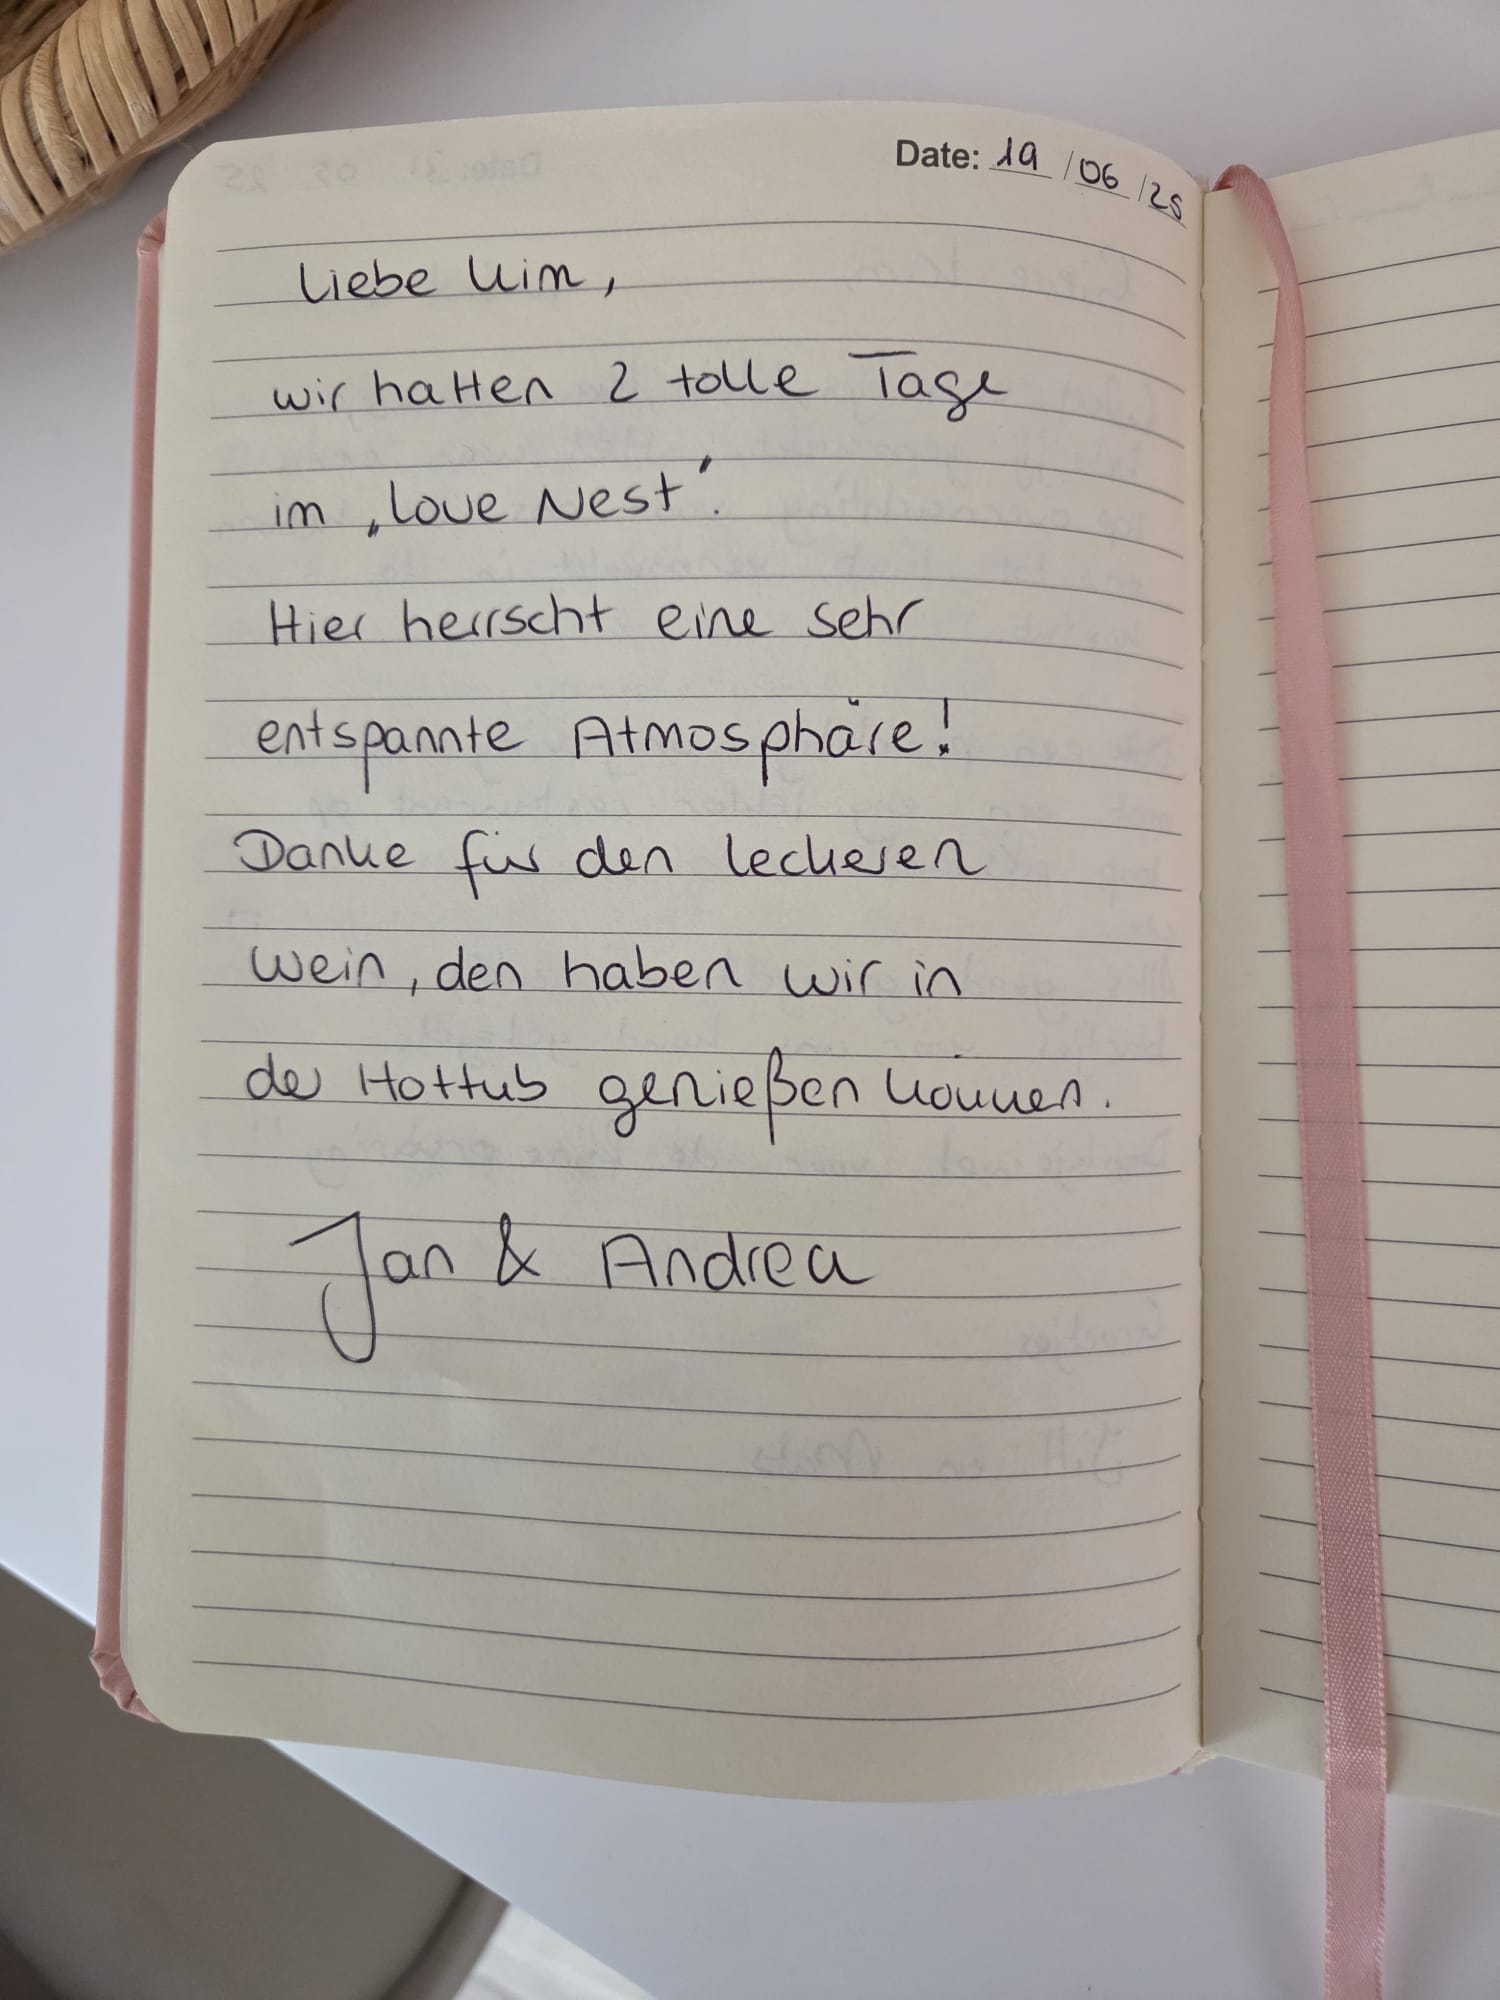 Date: 19/06/25
Liebe Kim,
wir hatten 2 tolle Tage
im „Love Nest".
Hier herrscht eine sehr
entspannte Atmosphäre!
Danke für den leckeren
Wein, den haben wir in
der Hottub genießen können.
Jan & Andrea